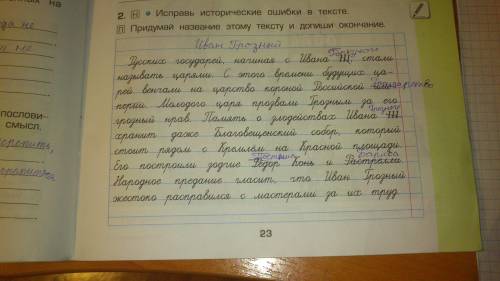 ных на
да не
и не
ПОСЛОВИ-
СМЫСЛ.
2. Н • Исправь исторические ошибки в тексте.
П Придумай название этому тексту и допиши окончание.
Иван Грозный
Грозного
Русских государей, начиная с Ивана III, стали
называть царями. С этого времени будущих ца-
рей венчали на царство короной Российской им-
перии. Молодого царя прозвали Грозным за его
Грозного
грозный нрав. Память о злодействах Ивана III
хранит даже Благовещенский собор, который
стоит рядом с Кремлём на Красной площади.
Постник Барма
Его построили зодчие Фёдор Конь и Растрелли.
Народное предание гласит, что Иван Грозный
жестоко расправился с мастерами за их труд
23